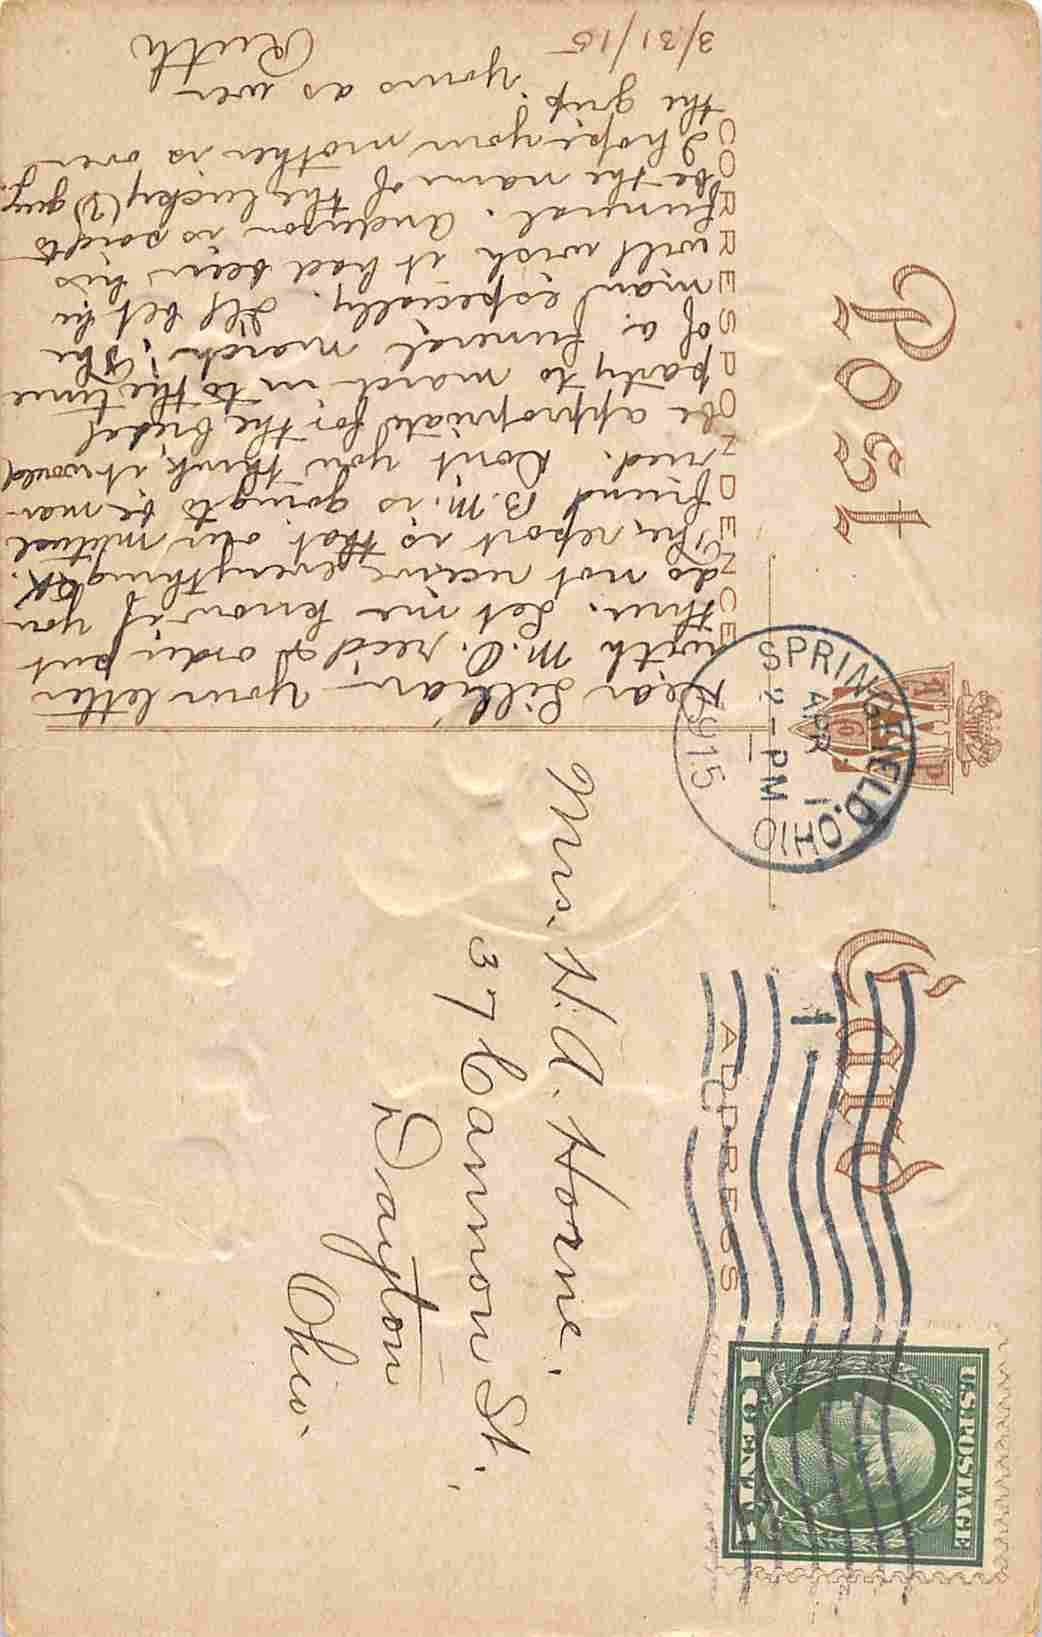 Post Card
CORRESPONDENCE
ADDRESS
SPRINGFIELD, OHIO
APR 1
2-PM
1915
1
U.S. POSTAGE
1 CENT 1
Mrs. H. A. Horne.
37 Cannon St.
Dayton
Ohio.
Dear Lillian - your letter
with M.O. rec'd & order put
thru. Let me know if you
do not receive everything O.K.
The report is that our mutual
friend B.M. is going to be mar-
ried. Don't you think it would
be appropriate for the bridal
party to march in to the tune
of a funeral march? The
man especially. I'll bet he
will wish it had been his
funeral. Anderson is said to
be the name of the lucky (?) guy.
I hope your mother is over
the grip.
Yours as ever
Ruth
3/31/15